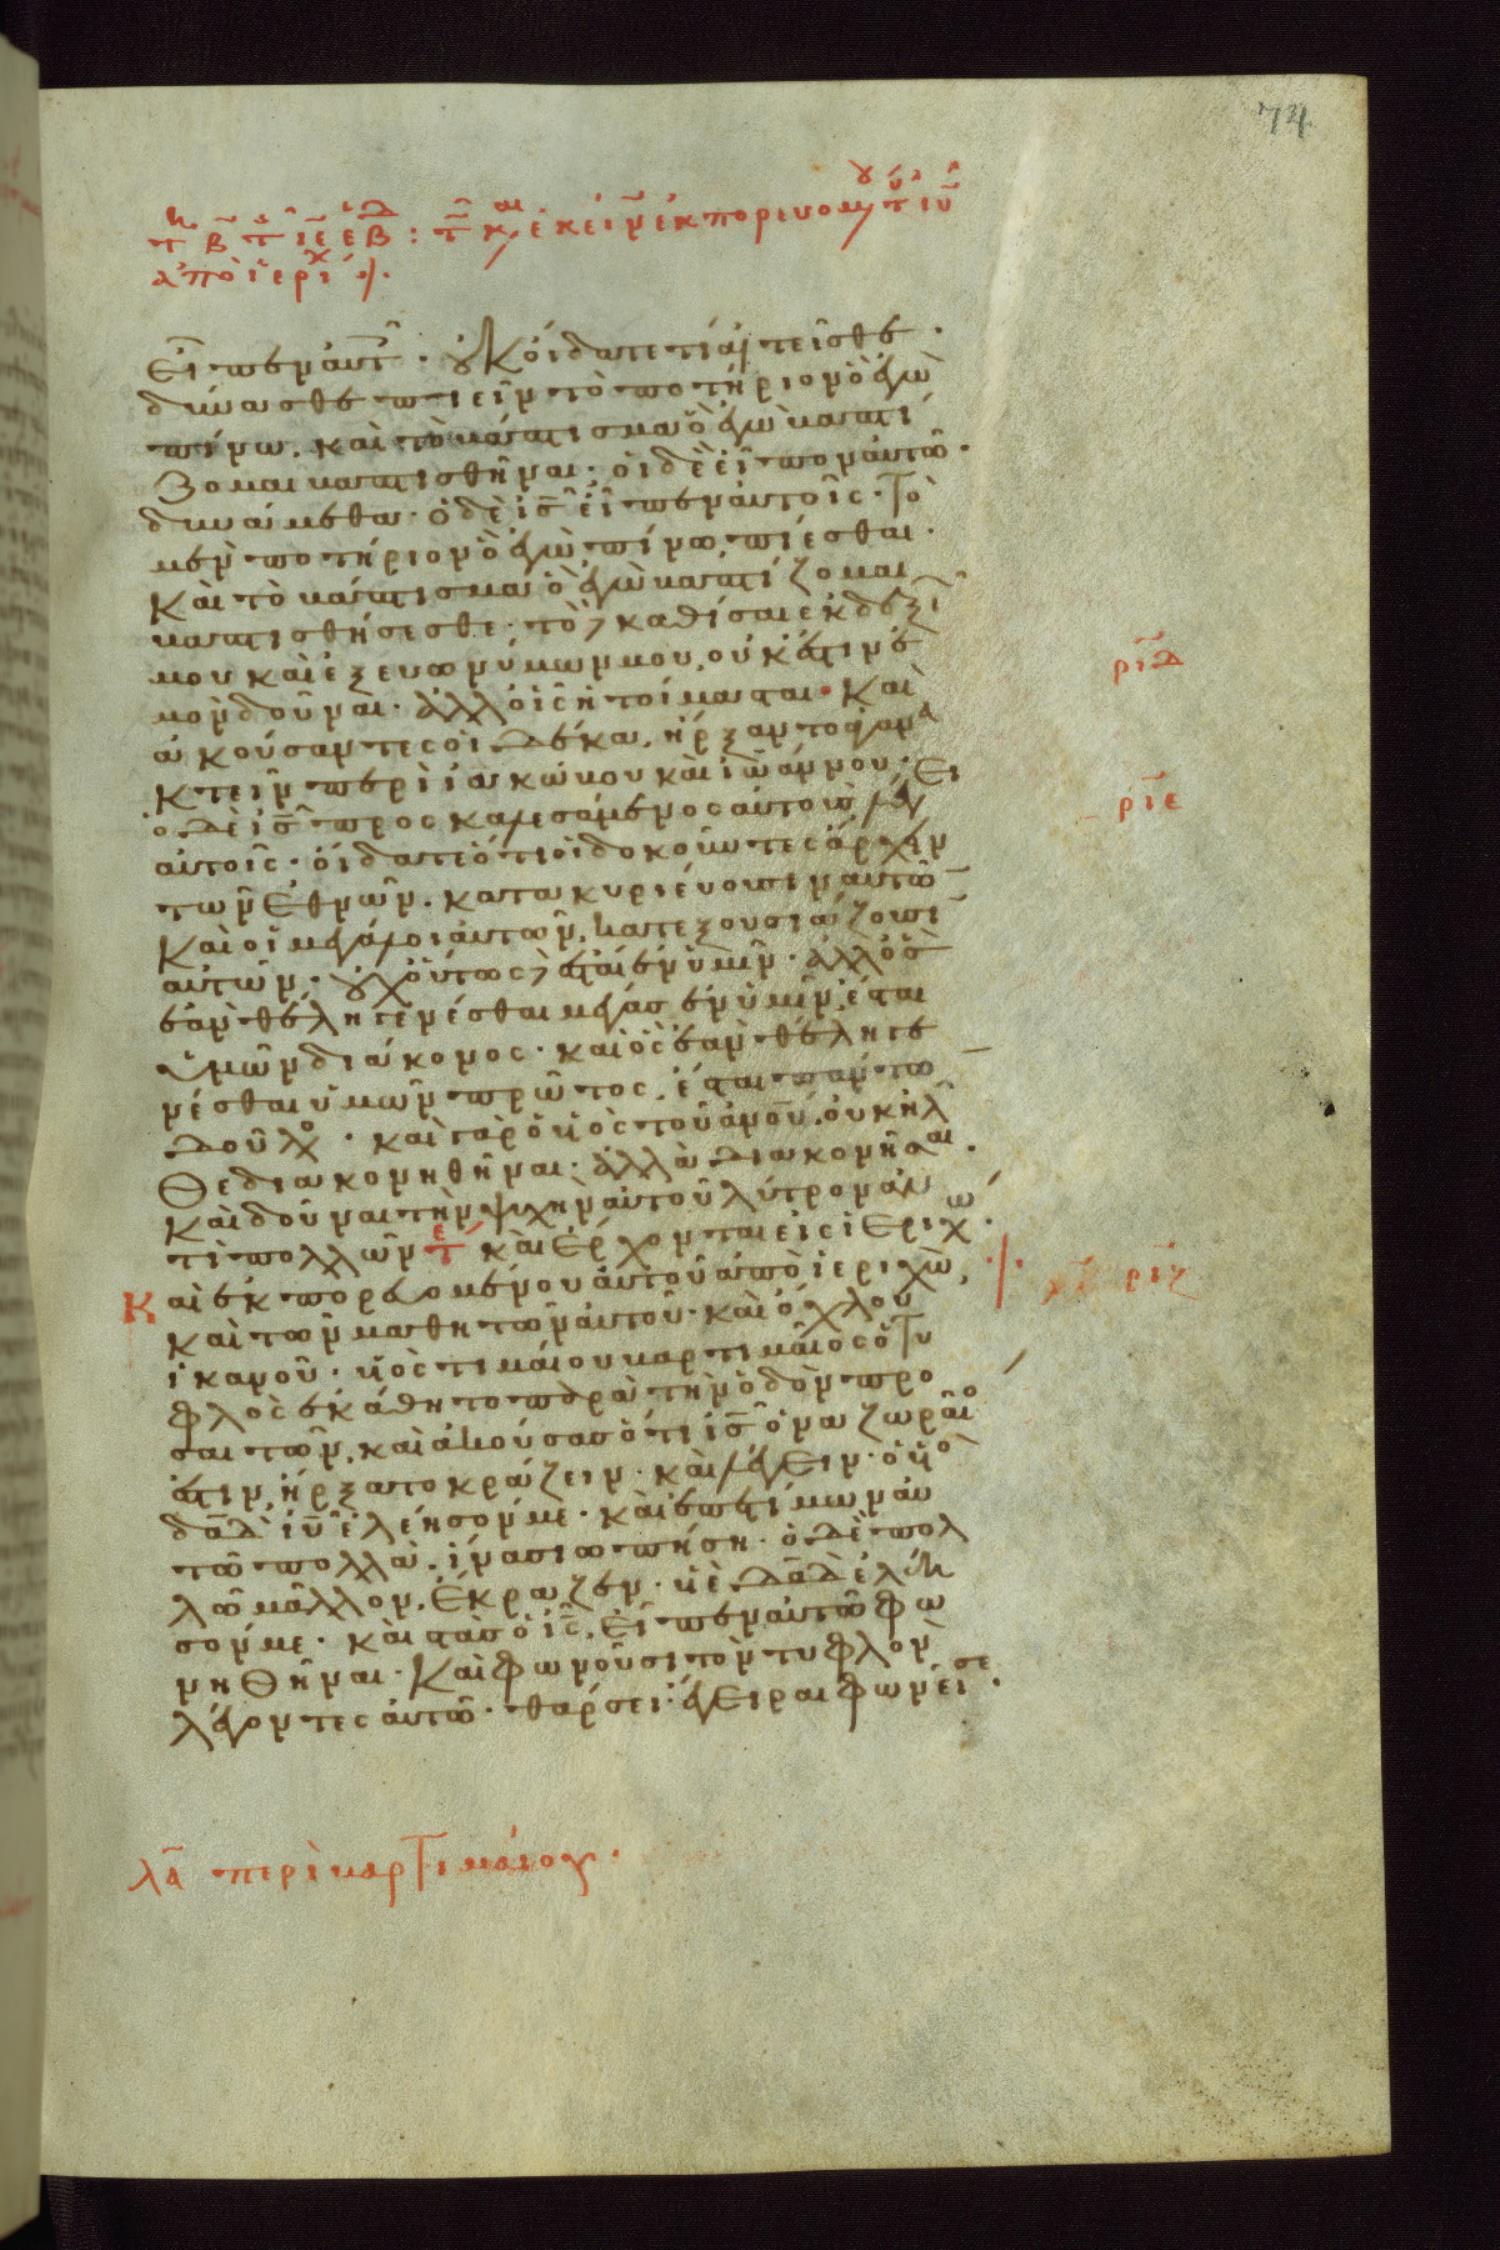 74
τη β τ ιε εβδ : τ κ, ἐκείν ἐκπορευομ τ ιυ
ἀπὸ ἱεριχ
εἶπεν αὐτ · οὐκ οἴδατε τί αἰτεῖσθε ·
δύνασθε πιεῖν τὸ ποτήριον ὃ ἐγὼ
πίνω, καὶ τὸ βάπτισμα ὃ ἐγὼ βαπτί
ζομαι βαπτισθῆναι · οἱ δὲ εἶπον αὐτῶ ·
δυνάμεθα · ὁ δὲ ις εἶπεν αὐτοῖς · Τὸ
μὲν ποτήριον ὃ ἐγὼ πίνω, πίεσθαι ·
Καὶ τὸ βάπτισμα ὃ ἐγὼ βαπτίζομαι
βαπτισθήσεσθε · τὸ δὲ καθίσαι ἐκ δεξι
μου καὶ ἐξ εὐωνύμων μου, οὐκ ἔστιν ἐ
μὸν δοῦναι · ἀλλ' οἷς ἡτοίμασται · Καὶ
ἀκούσαντες οἱ δέκα, ἤρξαντο ἀγανα
κτεῖν περὶ ἰακώβου καὶ ἰωάννου ·
ὁ δὲ ις προσκαλεσάμενος αὐτοὺς λέγει
αὐτοῖς · οἴδατε ὅτι οἱ δοκοῦντες ἄρχειν
τῶν ἐθνῶν · κατακυριεύουσιν αὐτῶ
Καὶ οἱ μεγάλοι αὐτῶν, κατεξουσιάζουσι
αὐτῶν · οὐχ οὕτως δὲ ἔσται ἐν ὑμῖν · ἀλλ' ὃς
ἐὰν θέλη γενέσθαι μέγας ἐν ὑμῖν, ἔσται
ὑμῶν διάκονος · καὶ ὃς ἐὰν θέλη γε
νέσθαι ὑμῶν πρῶτος, ἔσται πάντω
δοῦλο · καὶ γὰρ ὁ υἱὸς τοῦ ανου, οὐκ ἦλ
θε διακονηθῆναι · ἀλλὰ διακονῆσαι ·
Καὶ δοῦναι τὴν ψυχὴν αὐτοῦ λύτρον ἀν
τὶ πολλῶν τε καὶ ἔρχονται εἰς ἱεριχω ·
Καὶ ἐκπορευομένου αὐτοῦ ἀπὸ ἱεριχὼ,
καὶ τῶν μαθητῶν αὐτοῦ · καὶ ὄχλου
ἱκανοῦ · υἱὸς τιμαίου βαρτιμαῖος ὁ τυ
φλὸς ἐκάθητο παρὰ τὴν ὁδὸν προ
σαιτῶν, καὶ ἀκούσας ὅτι ις ὁ ναζωραῖο
ἐστιν, ἤρξατο κράζειν · καὶ λέγειν · ὁ υἱὸ
δαδ ιυ ἐλέησόν με · καὶ ἐπετίμων αὐ
τῶ πολλοὶ, ἵνα σιωπήση · ὁ δὲ πολ
λῶ μᾶλλον, ἔκραζεν · υἱὲ δαδ ἐλέη
σόν με · καὶ στὰς ὁ ις, εἶπεν αὐτὸν φω
νηθῆναι · Καὶ φωνοῦσι τὸν τυφλὸν
λέγοντες αὐτῶ · θάρσει · ἔγειραι φωνεῖ σε ·
ριδ
ριε
ρις
λα περὶ βαρτιμαίου ·